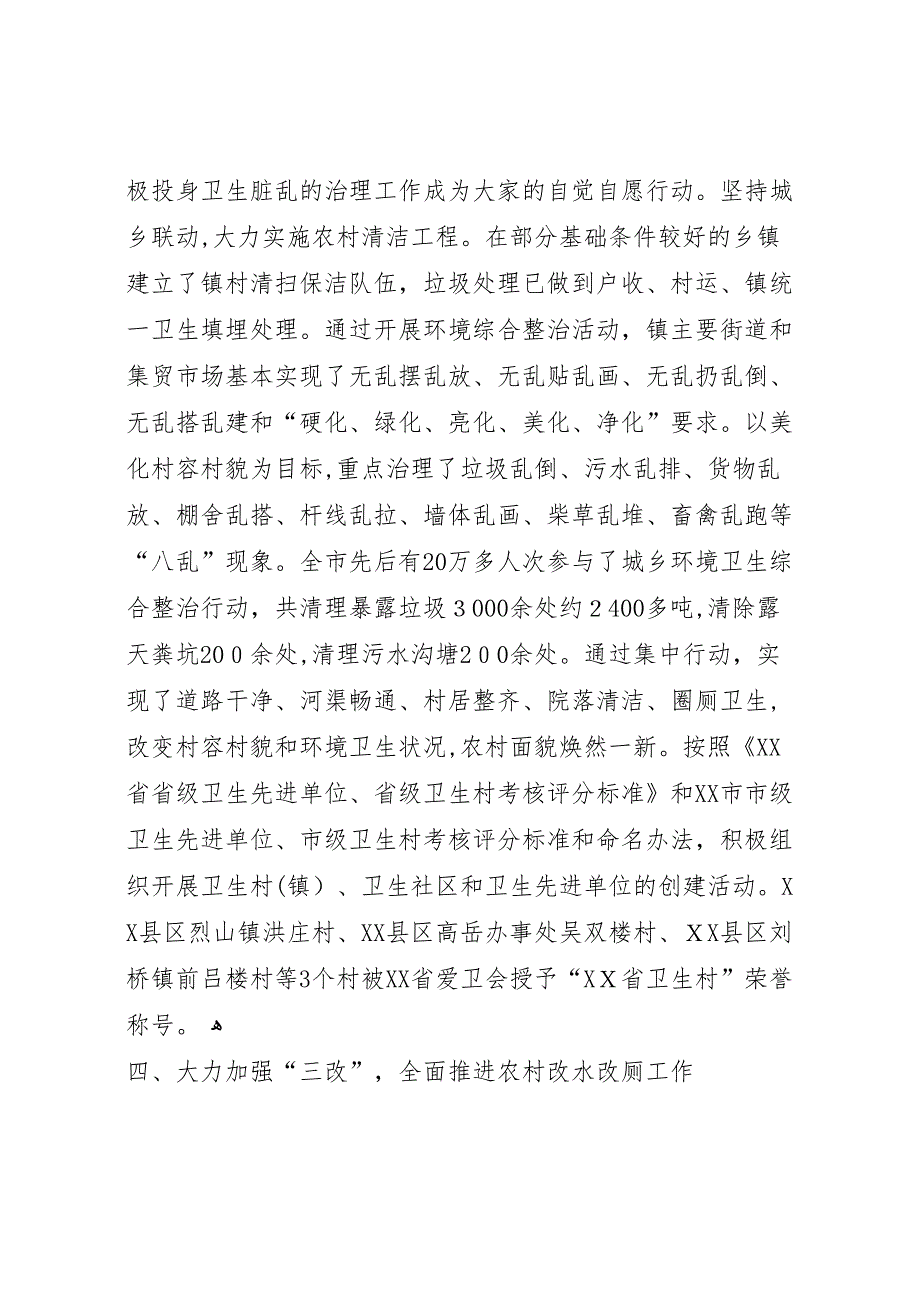 极投身卫生脏乱的治理工作成为大家的自觉自愿行动。坚持城
乡联动,大力实施农村清洁工程。在部分基础条件较好的乡镇
建立了镇村清扫保洁队伍，垃圾处理已做到户收、村运、镇统
一卫生填埋处理。通过开展环境综合整治活动，镇主要街道和
集贸市场基本实现了无乱摆乱放、无乱贴乱画、无乱扔乱倒、
无乱搭乱建和“硬化、绿化、亮化、美化、净化”要求。以美
化村容村貌为目标,重点治理了垃圾乱倒、污水乱排、货物乱
放、棚舍乱搭、杆线乱拉、墙体乱画、柴草乱堆、畜禽乱跑等
“八乱”现象。全市先后有20万多人次参与了城乡环境卫生综
合整治行动，共清理暴露垃圾３000余处约２400多吨,清除露
天粪坑20０余处,清理污水沟塘2００余处。通过集中行动，实
现了道路干净、河渠畅通、村居整齐、院落清洁、圈厕卫生，
改变村容村貌和环境卫生状况,农村面貌焕然一新。按照《XX
省省级卫生先进单位、省级卫生村考核评分标准》和XX市市级
卫生先进单位、市级卫生村考核评分标准和命名办法，积极组
织开展卫生村(镇）、卫生社区和卫生先进单位的创建活动。X
X县区烈山镇洪庄村、XX县区高岳办事处吴双楼村、ＸX县区刘
桥镇前吕楼村等3个村被XX省爱卫会授予“XＸ省卫生村”荣誉
称号。 ﻬ
四、大力加强“三改”，全面推进农村改水改厕工作